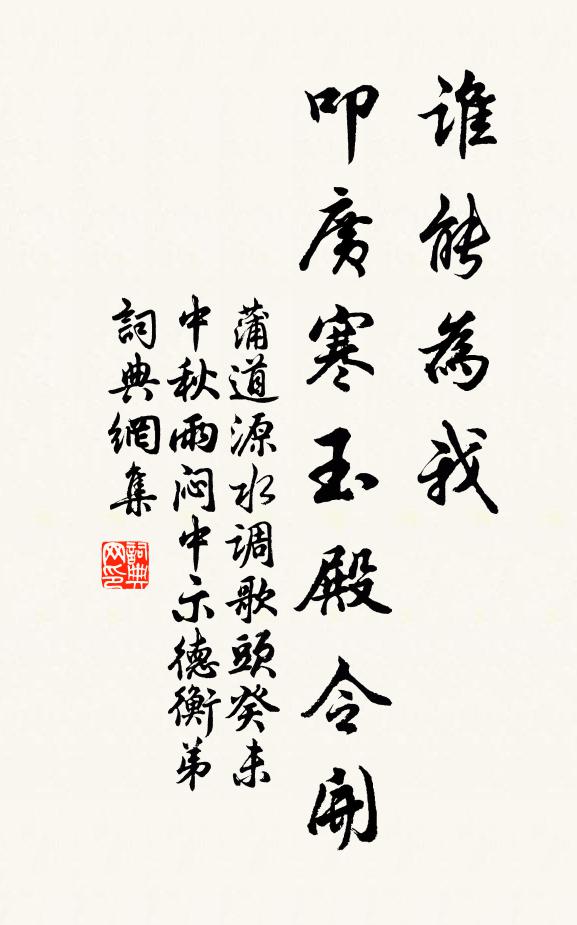 谁能為我
叩廣寒玉殿令開
蒲道源水调歌頭癸未
中秋雨闷中示德衡弟
詞典網集
詞典
网印